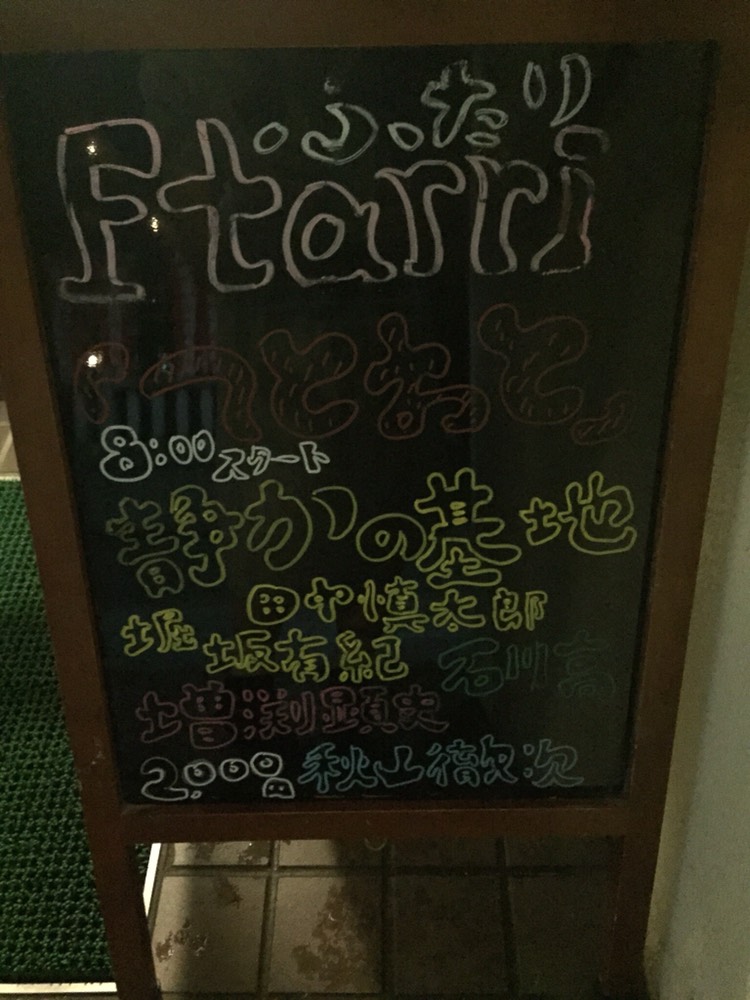 ふたり
Ftarri
8:00スタート
静かの基地
田中慎太郎
堀坂有紀 石川高
増渕顕史
2,000円 秋山徹次